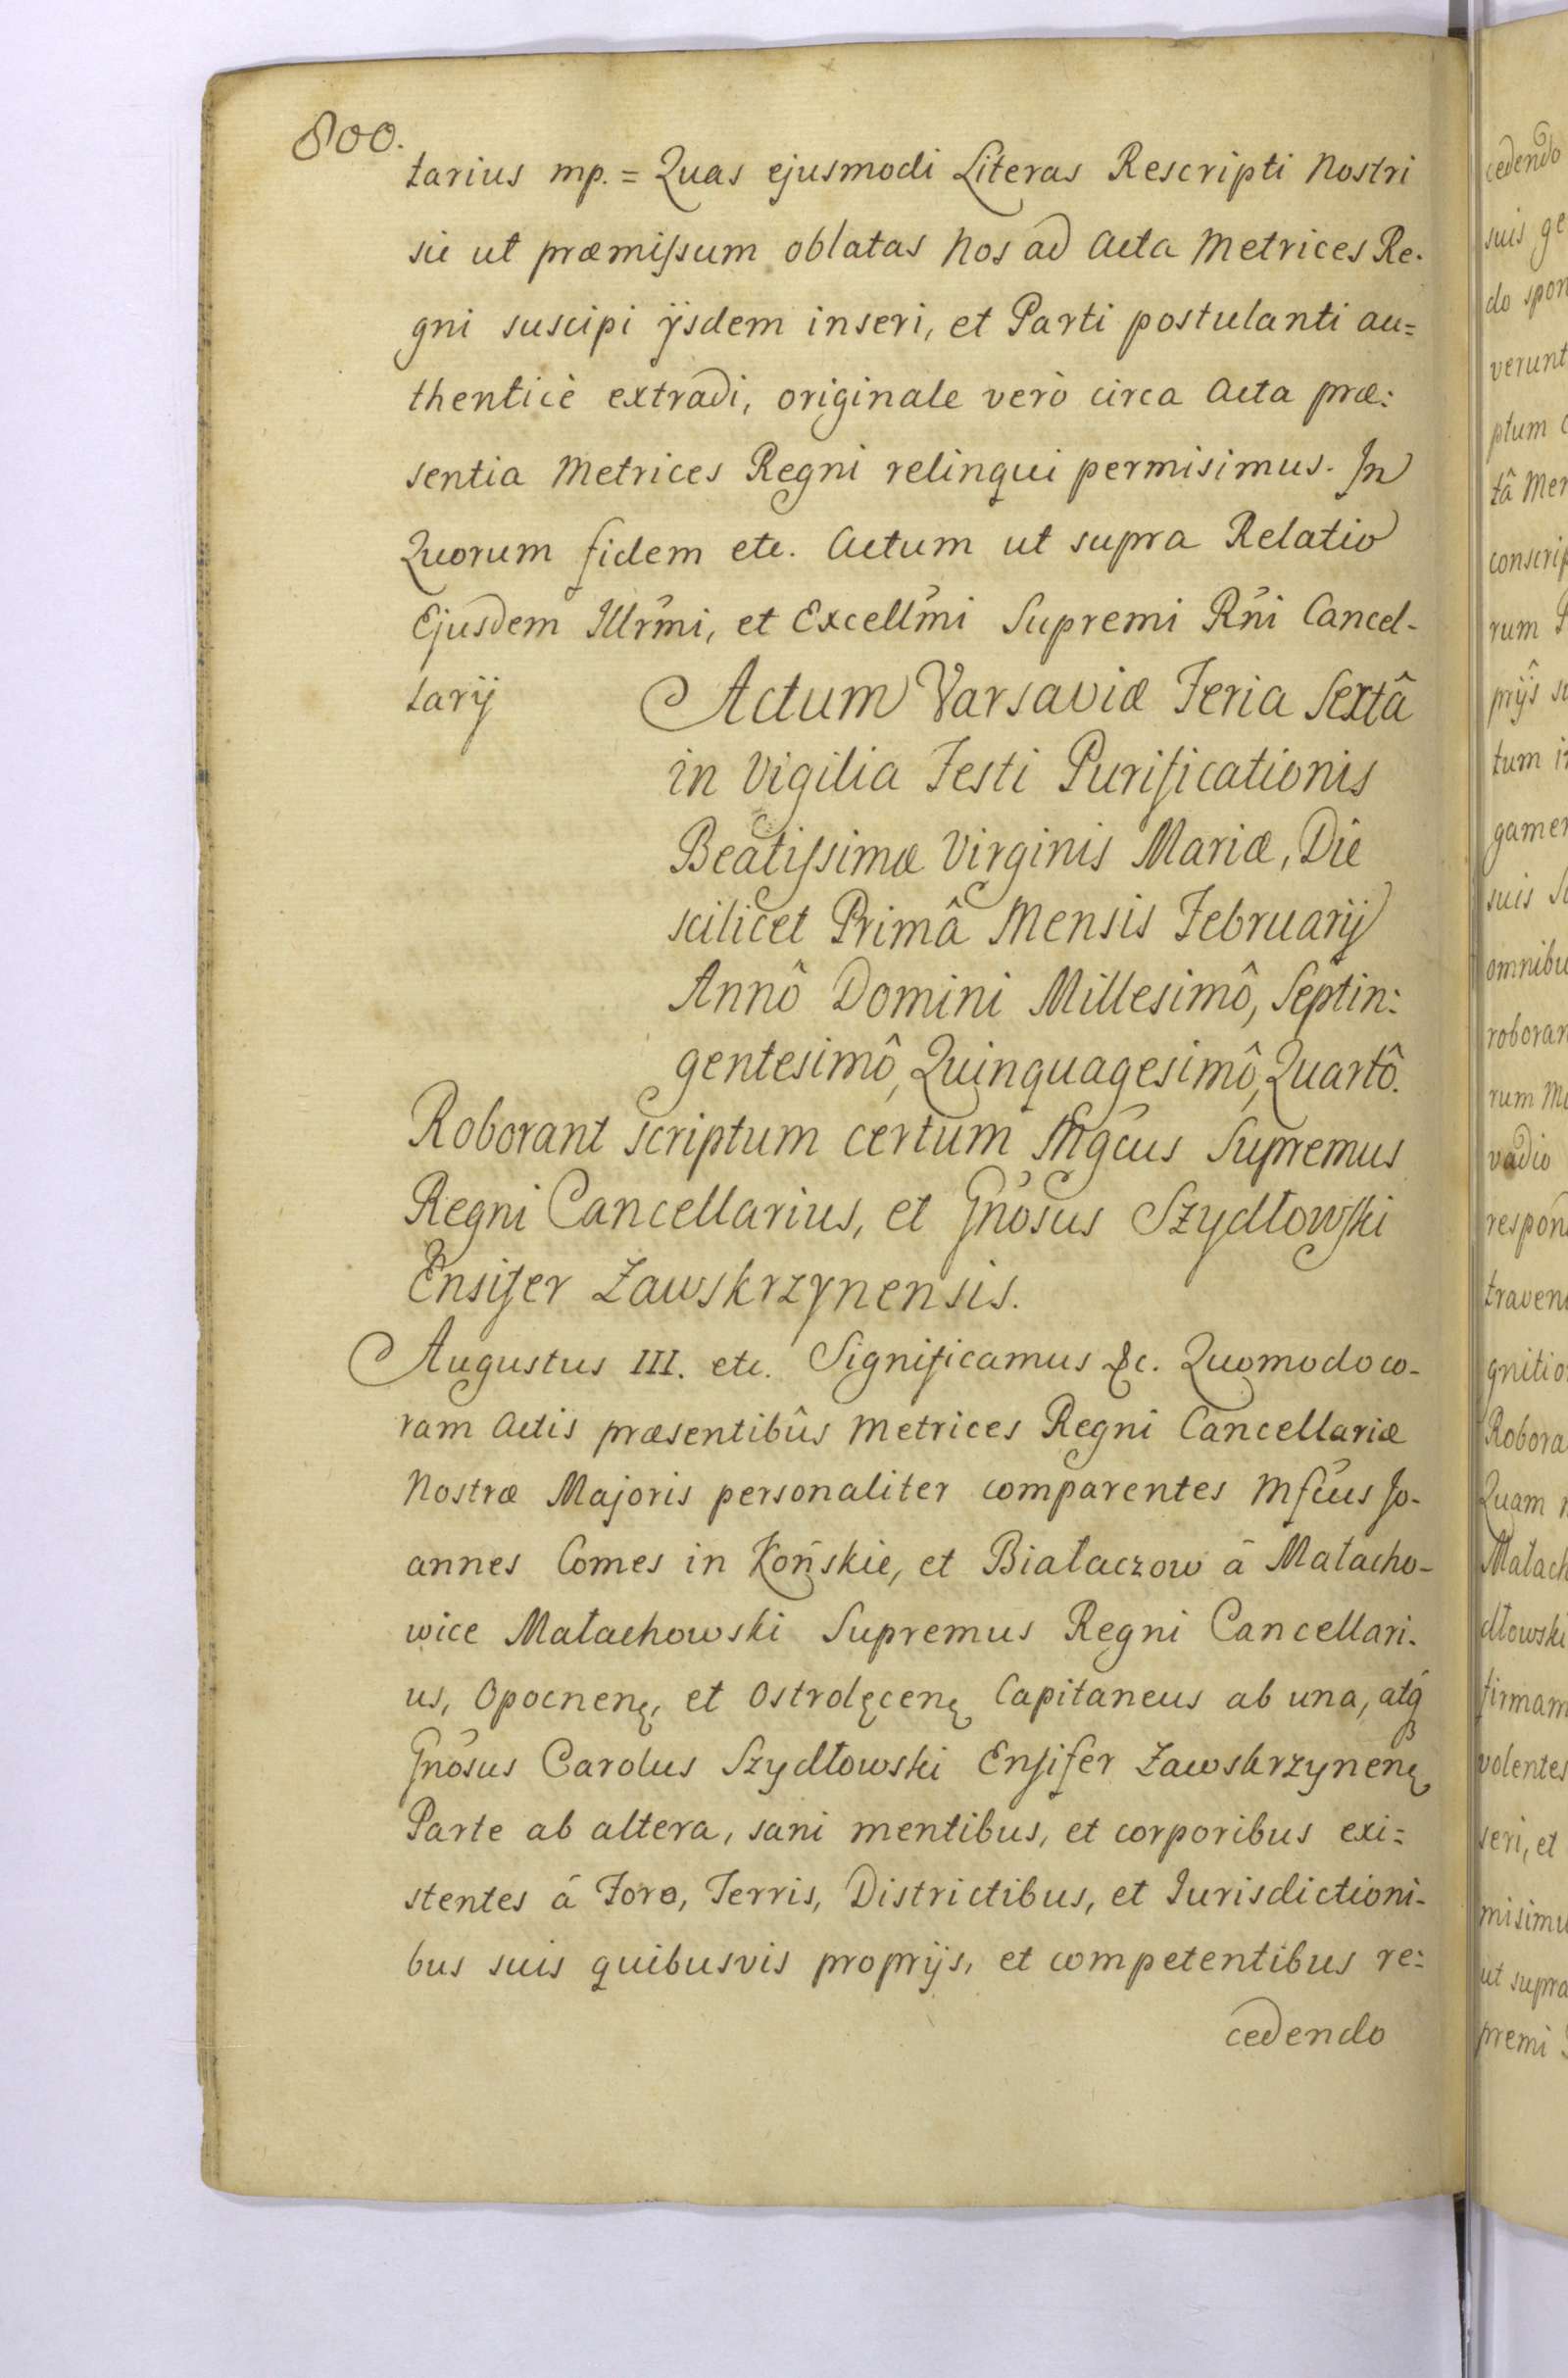 800.
tarius mp. = Quas ejusmodi Literas Rescripti Nostri
sic ut præmissum oblatas Nos ad Acta Metrices Re-
gni suscipi ijsdem inseri, et Parti postulanti au=
thenticè extradi, originale verò circa Acta præ:
sentia Metrices Regni relinqui permisimus. In
Quorum fidem etc. Actum ut supra Relatio
Ejusdem Illr̃mi, et Excellm̃i Supremi Rñi Cancel-
larij
Actum Varsaviæ Feria Sextâ
in Vigilia Festi Purificationis
Beatissimæ Virginis Mariæ, Die
scilicet Primâ Mensis Februarij
Annô Domini Millesimô, Septin:
gentesimô, Quinquagesimô, Quartô.
Roborant scriptum certum Mgcus Supremus
Regni Cancellarius, et Gnosus Szydłowski
Ensifer Zawskrzynensis.
Augustus III. etc. Significamus &c. Quomodo co-
ram Actis præsentibûs Metrices Regni Cancellariæ
Nostræ Majoris personaliter comparentes Mfcus Jo-
annes Comes in Końskie, et Białaczow á Małacho-
wice Małachowski Supremus Regni Cancellari-
us, Opocnenę, et Ostrolęcenę Capitaneus ab una, atq́
Gnosus Carolus Szydłowski Ensifer Zawskrzynenę
Parte ab altera, sani mentibus, et corporibus exi=
stentes á Foro, Terris, Districtibus, et Iurisdictioni-
bus suis quibusvis proprijs, et competentibus re:
cedendo
cedendo
suis ge
do spon
verunt
ptum
tâ Mer
conscrip
rum
prijs su
tum i
gamen
suis
omnibu
roborar
rum
vadio
respon
traven
gnitio
Robora
Quam
Małach
dłowski
firmam
volentes
seri, et
misimu
ut supra
premi